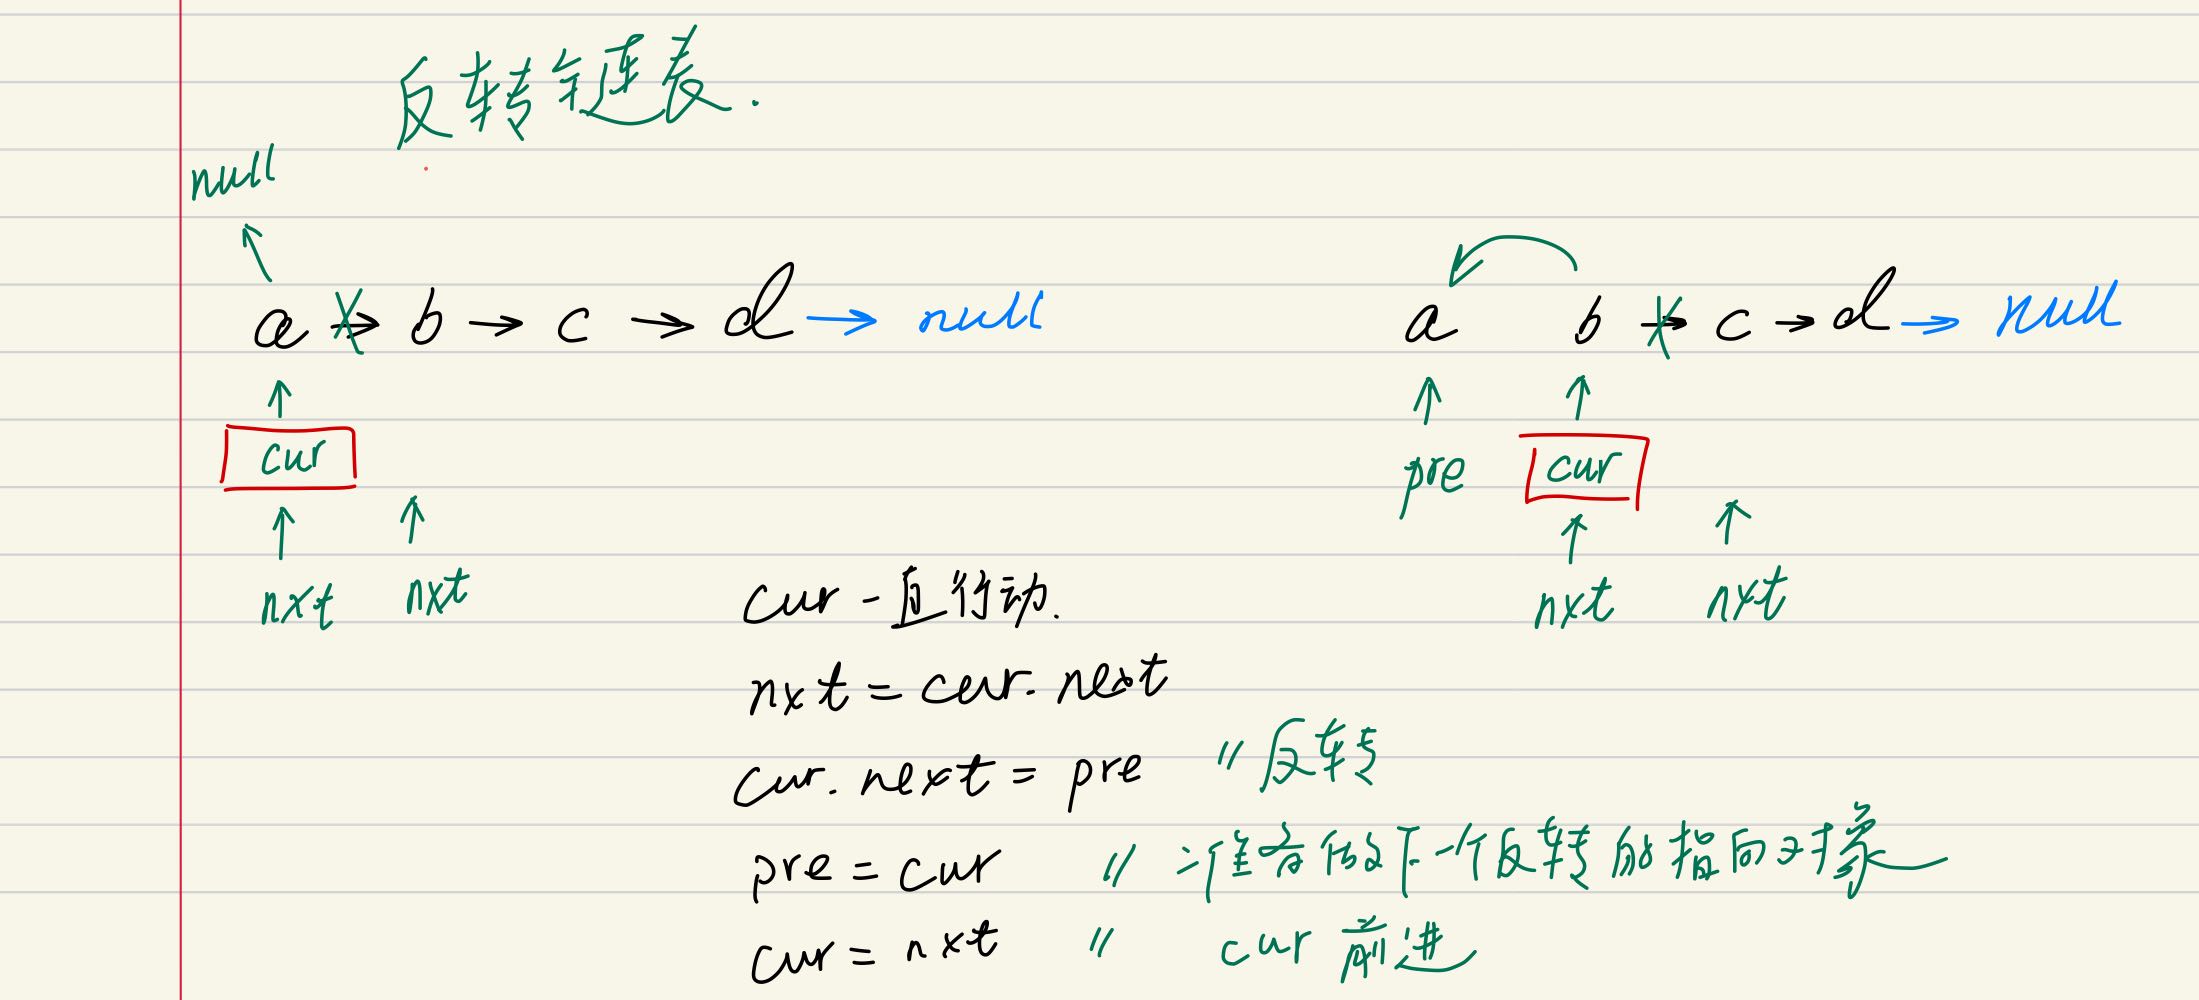 反转链表.
null
a → b → c → d → null
a b → c → d → null
cur
pre cur
nxt nxt
nxt nxt
cur 一直行动.
nxt = cur. next
cur. next = pre // 反转
pre = cur // 准备做下一个反转的指向对象
cur = nxt // cur 前进